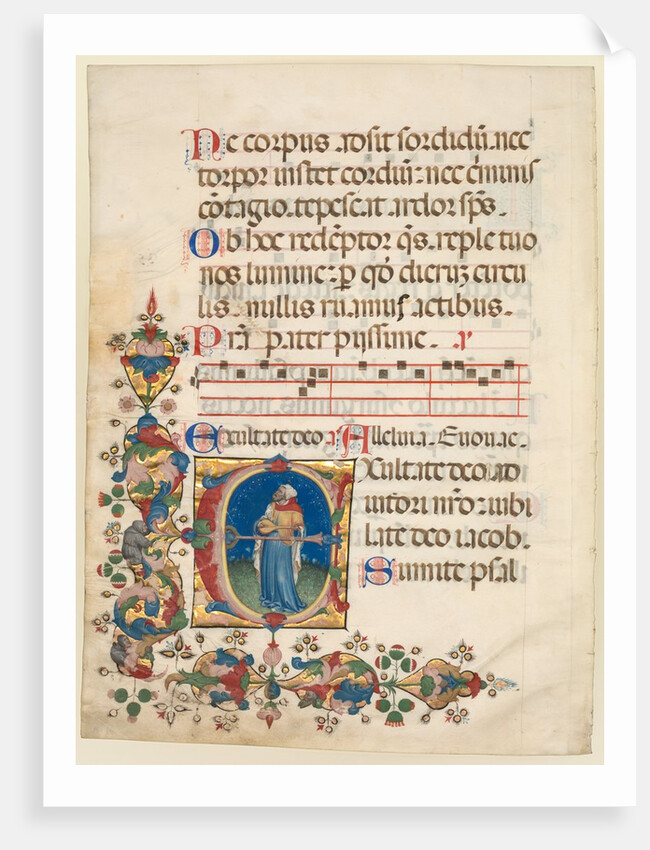 Ne corpus .adsit sordidũ. nec
torpor instet cordiũ: nec c̃minis
cõtagio. tepescat ardor sp̃s.
Ob hoc redẽptor q̃s. reple tuo
nos lumine: p̱ qõ dierũz circu
lis. nullis ruamus actibus.
Pr̃a pater pijssime. a
Exultate deo a Alleluia. Euouae.
EXultate deo ad
iutori nr̃o: iubi
late deo iacob.
Sumite psal